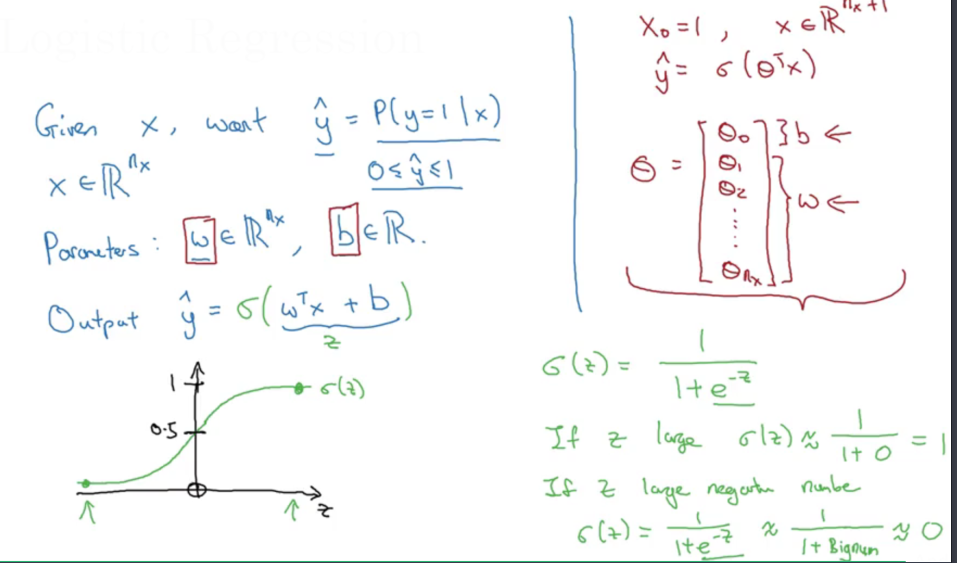 Logistic Regression
Given x, want ŷ = P(y=1|x)
0 ≤ ŷ ≤ 1
x ∈ ℝ^{n_x}
Parameters: w ∈ ℝ^{n_x}, b ∈ ℝ.
Output ŷ = σ(w^T x + b)
z
1
σ(z)
0.5
z
X₀ = 1, x ∈ ℝ^{n_x+1}
ŷ = σ(θ^T x)
θ = [θ₀ θ₁ θ₂ ⋮ θ_{n_x}]
} b ←
} w ←
σ(z) = 1/(1+e^{-z})
If z large σ(z) ≈ 1/(1+0) = 1
If z large negative number
σ(z) = 1/(1+e^{-z}) ≈ 1/(1+Bignum) ≈ 0